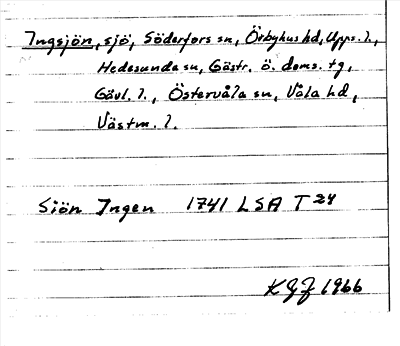 Ingsjön, sjö, Söderfors sn, Örbyhus hd, Upps. l.,
Hedesunda sn, Gästr. ö. doms. tg,
Gävl. l., Östervåla sn, Våla hd,
Västm. l.
Siön Ingen 1741 LSA T 24
KGJ 1966